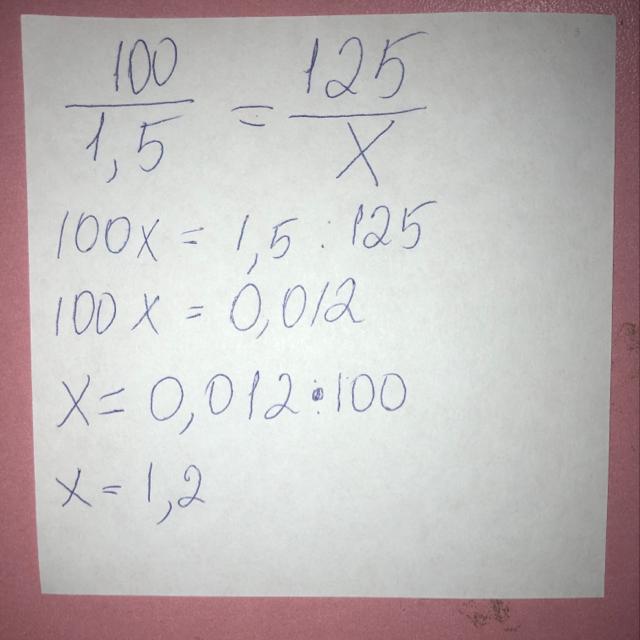 100/1,5 = 125/x
100x = 1,5 : 125
100x = 0,012
x = 0,012 · 100
x = 1,2